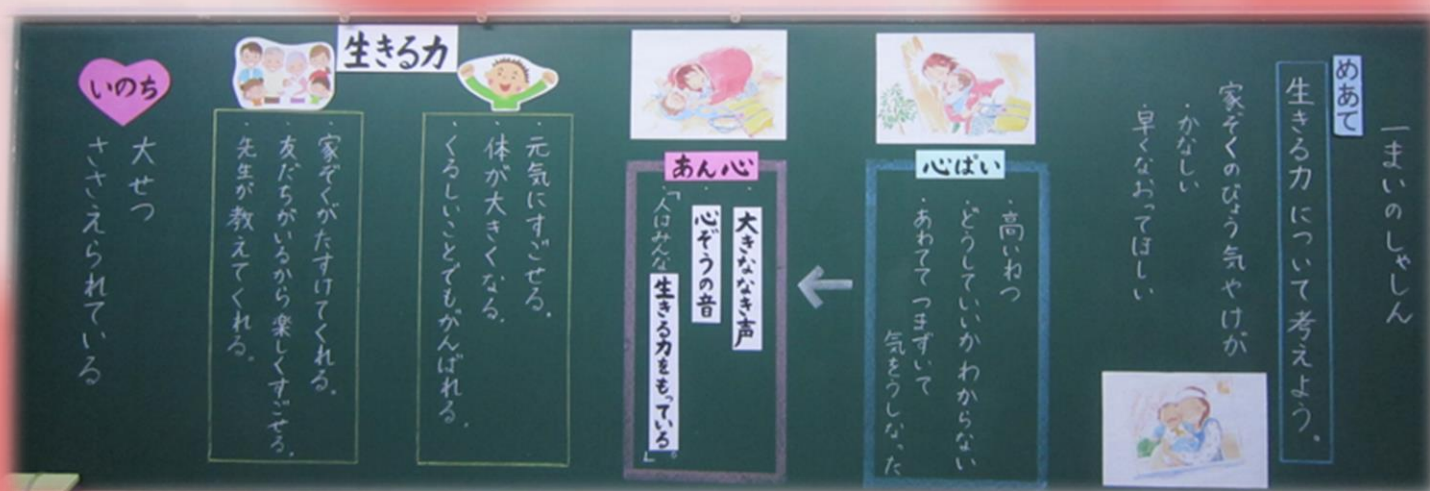 一まいのしゃしん
めあて
生きる力について考えよう。
家ぞくのびょう気やけが
・かなしい
・早くなおってほしい
心ぱい
・高いねつ
・どうしていいかわからない
・あわててつまずいて
気をうしなった
あん心
・大きななき声
・心ぞうの音
・「人はみんな生きる力をもっている。」
生きる力
・元気にすごせる。
・体が大きくなる。
・くるしいことでもがんばれる。
・家ぞくがたすけてくれる。
・友だちがいるから楽しくすごせる。
・先生が教えてくれる。
いのち
大せつ
ささえられている